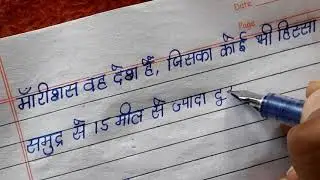 Date
Page
मॉरीशस वह देश है, जिसका कोई भी हिस्सा
समुद्र से 15 मील से ज्यादा दू